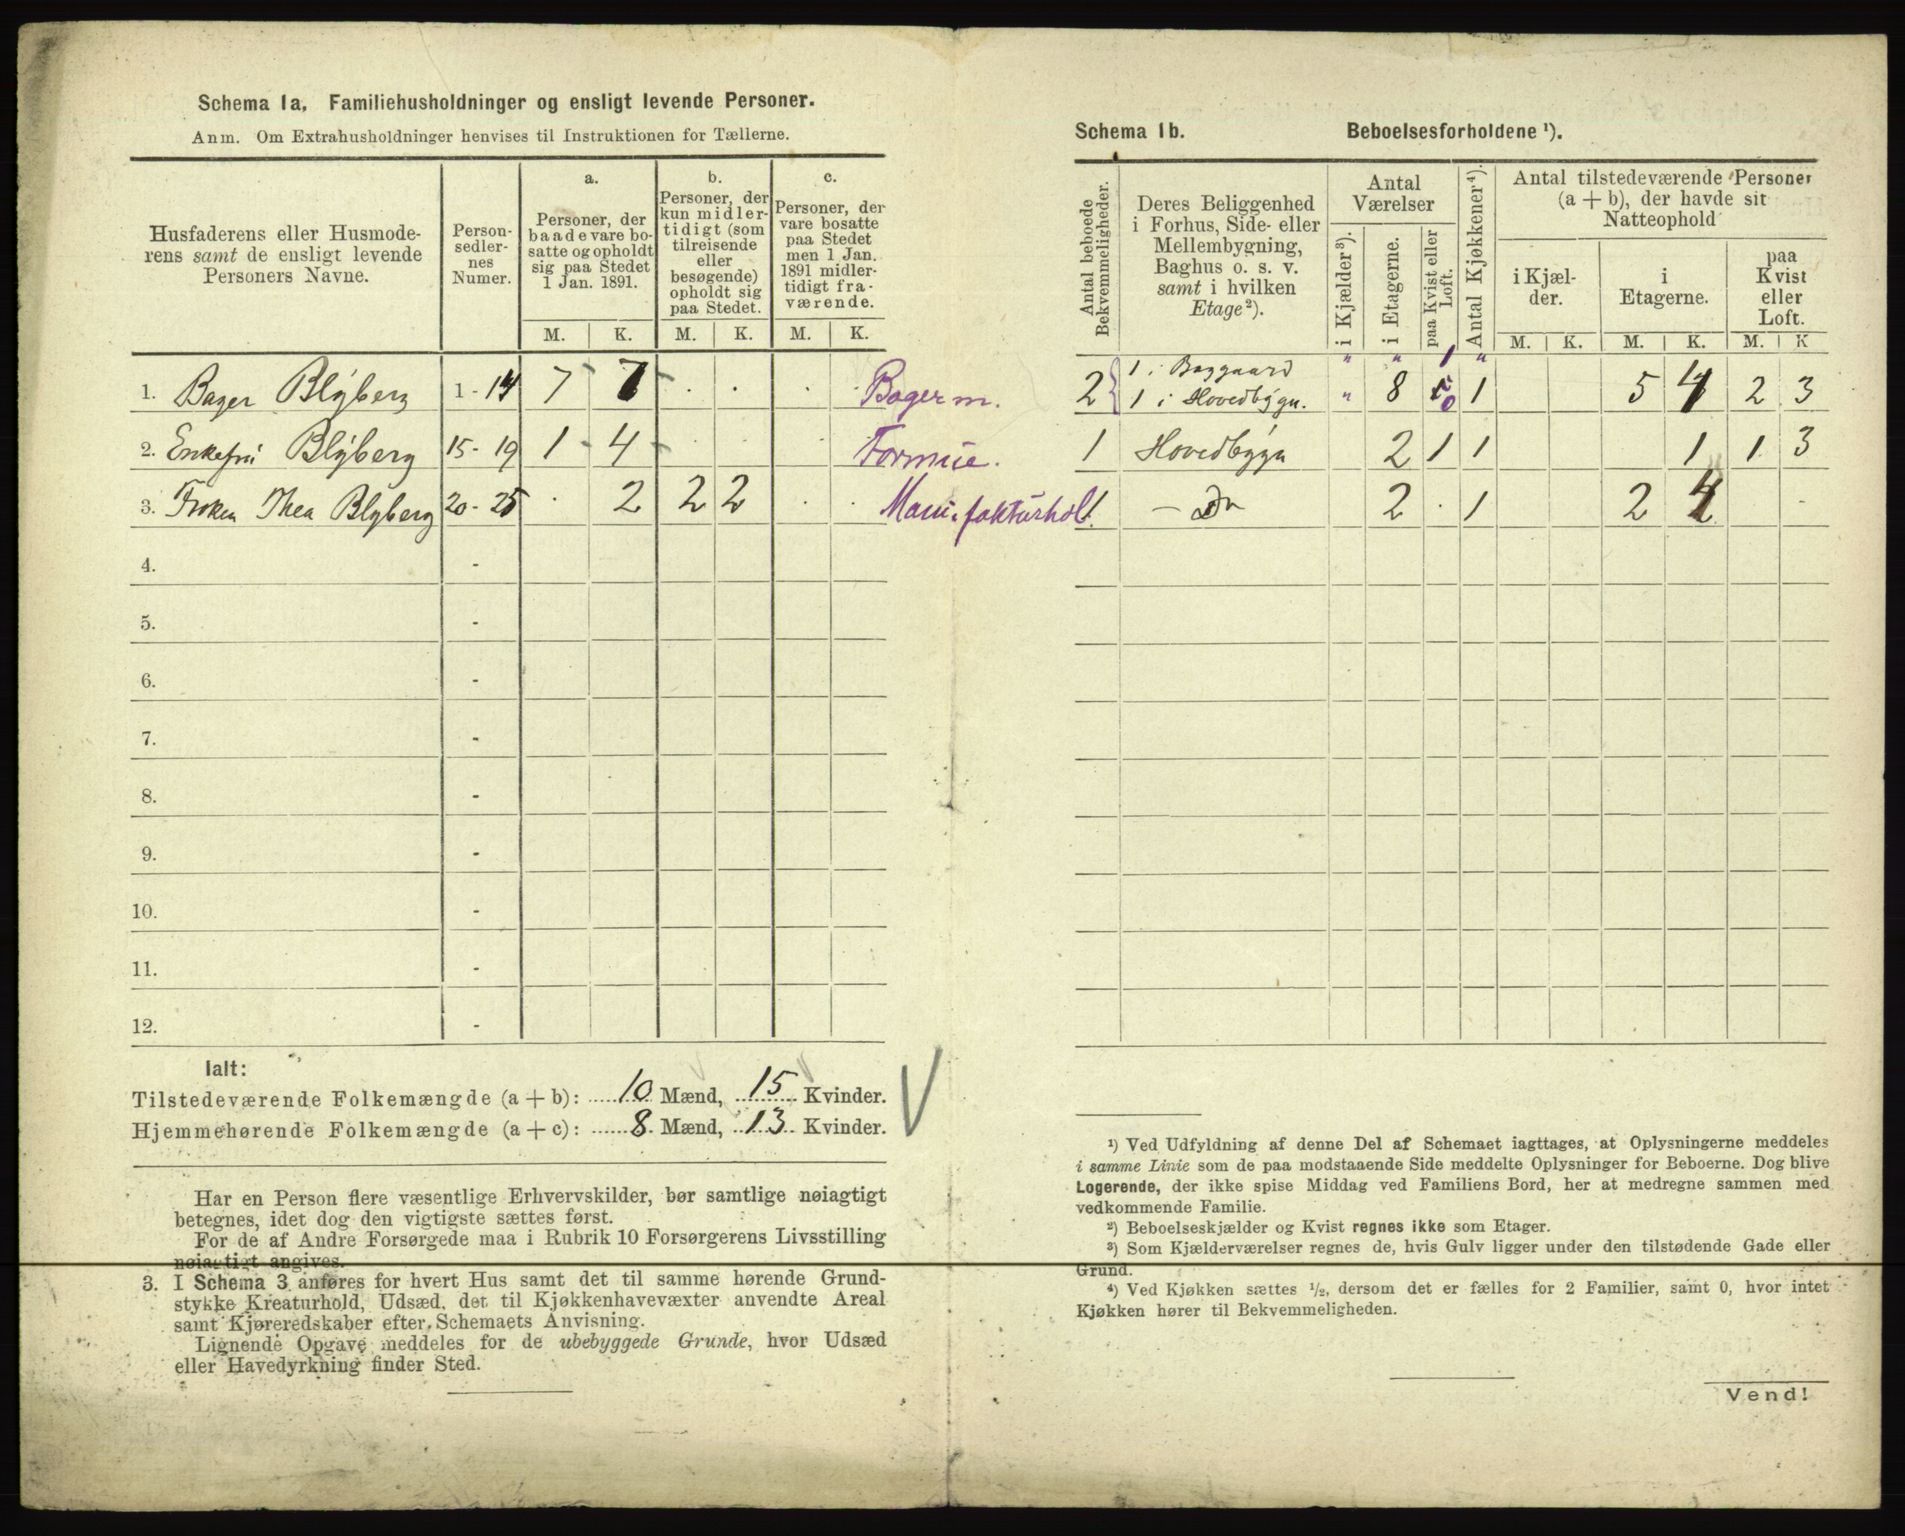 Schema 1a. Familiehusholdninger og ensligt levende Personer.
Anm. Om Extrahusholdninger henvises til Instruktionen for Tællerne.
Husfaderens eller Husmode-
rens samt de ensligt levende
Personers Navne.
Person-
sedler-
nes
Numer.
a.
Personer, der
baade vare bo-
satte og opholdt
sig paa Stedet
1 Jan. 1891.
b.
Personer, der
kun midler-
tidigt (som
tilreisende
eller
besøgende)
opholdt sig
paa Stedet.
c.
Personer, der
vare bosatte
paa Stedet
men 1 Jan.
1891 midler-
tidigt fra-
værende.
M. K. M. K. M. K.
1. Bager Blÿberg 1 - 14 7 7 . . . . Bagerm.
2. Enkefrü Blÿberg 15 - 19 1 4 . . . . Formüe.
3. Frøken Thea Blÿberg 20 - 25 . 2 2 2 . . Manufakturhdl.
4. -
5. -
6. -
7. -
8. -
9. -
10. -
11. -
12. -
Ialt:
Tilstedeværende Folkemængde (a + b): 10 Mænd, 15 Kvinder.
Hjemmehørende Folkemængde (a + c): 8 Mænd, 13 Kvinder.
Har en Person flere væsentlige Erhvervskilder, bør samtlige nøiagtigt
betegnes, idet dog den vigtigste sættes først.
For de af Andre Forsørgede maa i Rubrik 10 Forsørgerens Livsstilling
nøiagtigt angives.
3. I Schema 3 anføres for hvert Hus samt det til samme hørende Grund-
stykke Kreaturhold, Udsæd, det til Kjøkkenhavevæxter anvendte Areal
samt Kjøreredskaber efter Schemaets Anvisning.
Lignende Opgave meddeles for de ubebyggede Grunde, hvor Udsæd
eller Havedyrkning finder Sted.
Schema 1b. Beboelsesforholdene ¹).
Antal beboede
Bekvemmeligheder.
Deres Beliggenhed
i Forhus, Side- eller
Mellembygning,
Baghus o. s. v.
samt i hvilken
Etage ²).
Antal
Værelser
i Kjælder ³).
i Etagerne.
paa Kvist eller
Loft.
Antal Kjøkkener ⁴).
Antal tilstedeværende Personer
(a + b), der havde sit
Natteophold
i Kjæl-
der.
i
Etagerne.
paa
Kvist
eller
Loft.
M. K. M. K. M. K
1 i Baggaard " " 1 "
2 { 1 i Hovedbÿgn. " 8 0 1 5 4 2 3
1 Hovedbÿgn 2 1 1 1 1 3
1 — Do 2 . 1 2 4 -
¹) Ved Udfyldning af denne Del af Schemaet iagttages, at Oplysningerne meddeles
i samme Linie som de paa modstaaende Side meddelte Oplysninger for Beboerne. Dog blive
Logerende, der ikke spise Middag ved Familiens Bord, her at medregne sammen med
vedkommende Familie.
²) Beboelseskjælder og Kvist regnes ikke som Etager.
³) Som Kjælderværelser regnes de, hvis Gulv ligger under den tilstødende Gade eller
Grund.
⁴) Ved Kjøkken sættes ½, dersom det er fælles for 2 Familier, samt 0, hvor intet
Kjøkken hører til Bekvemmeligheden.
Vend!